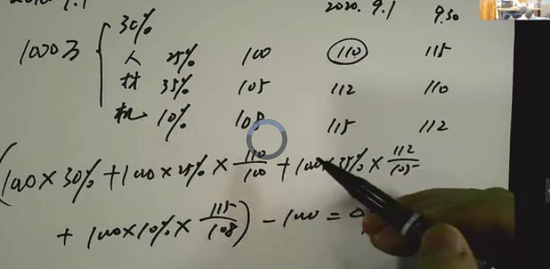 2020.9.1 9.30
30%
1000万
人 25% 100 110 115
材 35% 105 112 110
机 10% 108 115 112
(100×30%+100×25%×110/100+100×35%×112/105
+100×10%×115/108)-100=